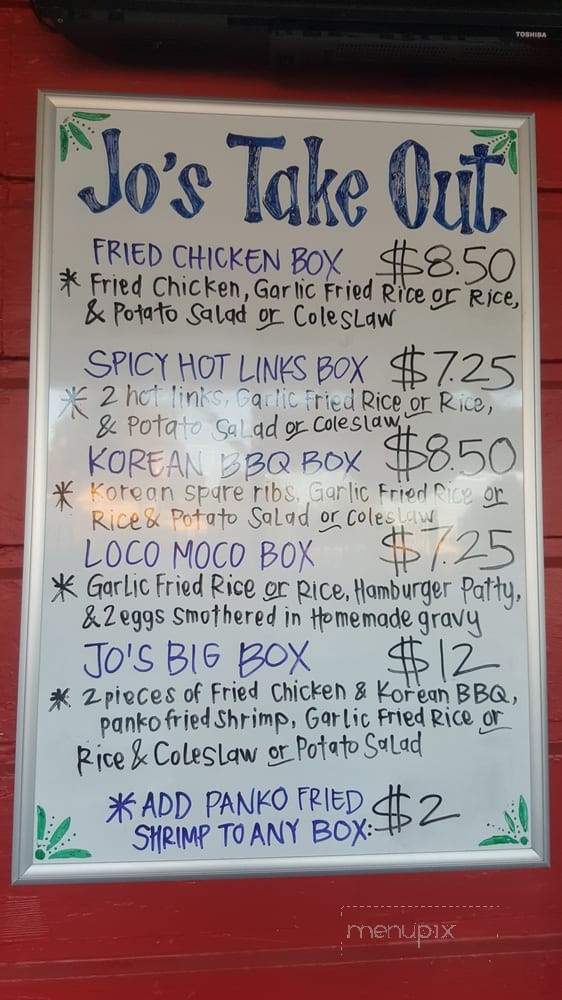 TOSHIBA
Jo's Take Out
FRIED CHICKEN BOX $8.50
* Fried Chicken, Garlic Fried Rice or Rice,
& Potato Salad or Coleslaw
SPICY HOT LINKS BOX $7.25
* 2 hot links, Garlic Fried Rice or Rice,
& Potato Salad or Coleslaw
KOREAN BBQ BOX $8.50
* Korean spare ribs, Garlic Fried Rice or
Rice & Potato Salad or Coleslaw
LOCO MOCO BOX $7.25
* Garlic Fried Rice or Rice, Hamburger Patty,
& 2 eggs smothered in Homemade gravy
JO'S BIG BOX $12
* 2 pieces of Fried Chicken & Korean BBQ,
panko fried shrimp, Garlic Fried Rice or
Rice & Coleslaw or Potato Salad
* ADD PANKO FRIED $2
SHRIMP TO ANY BOX:
menupix